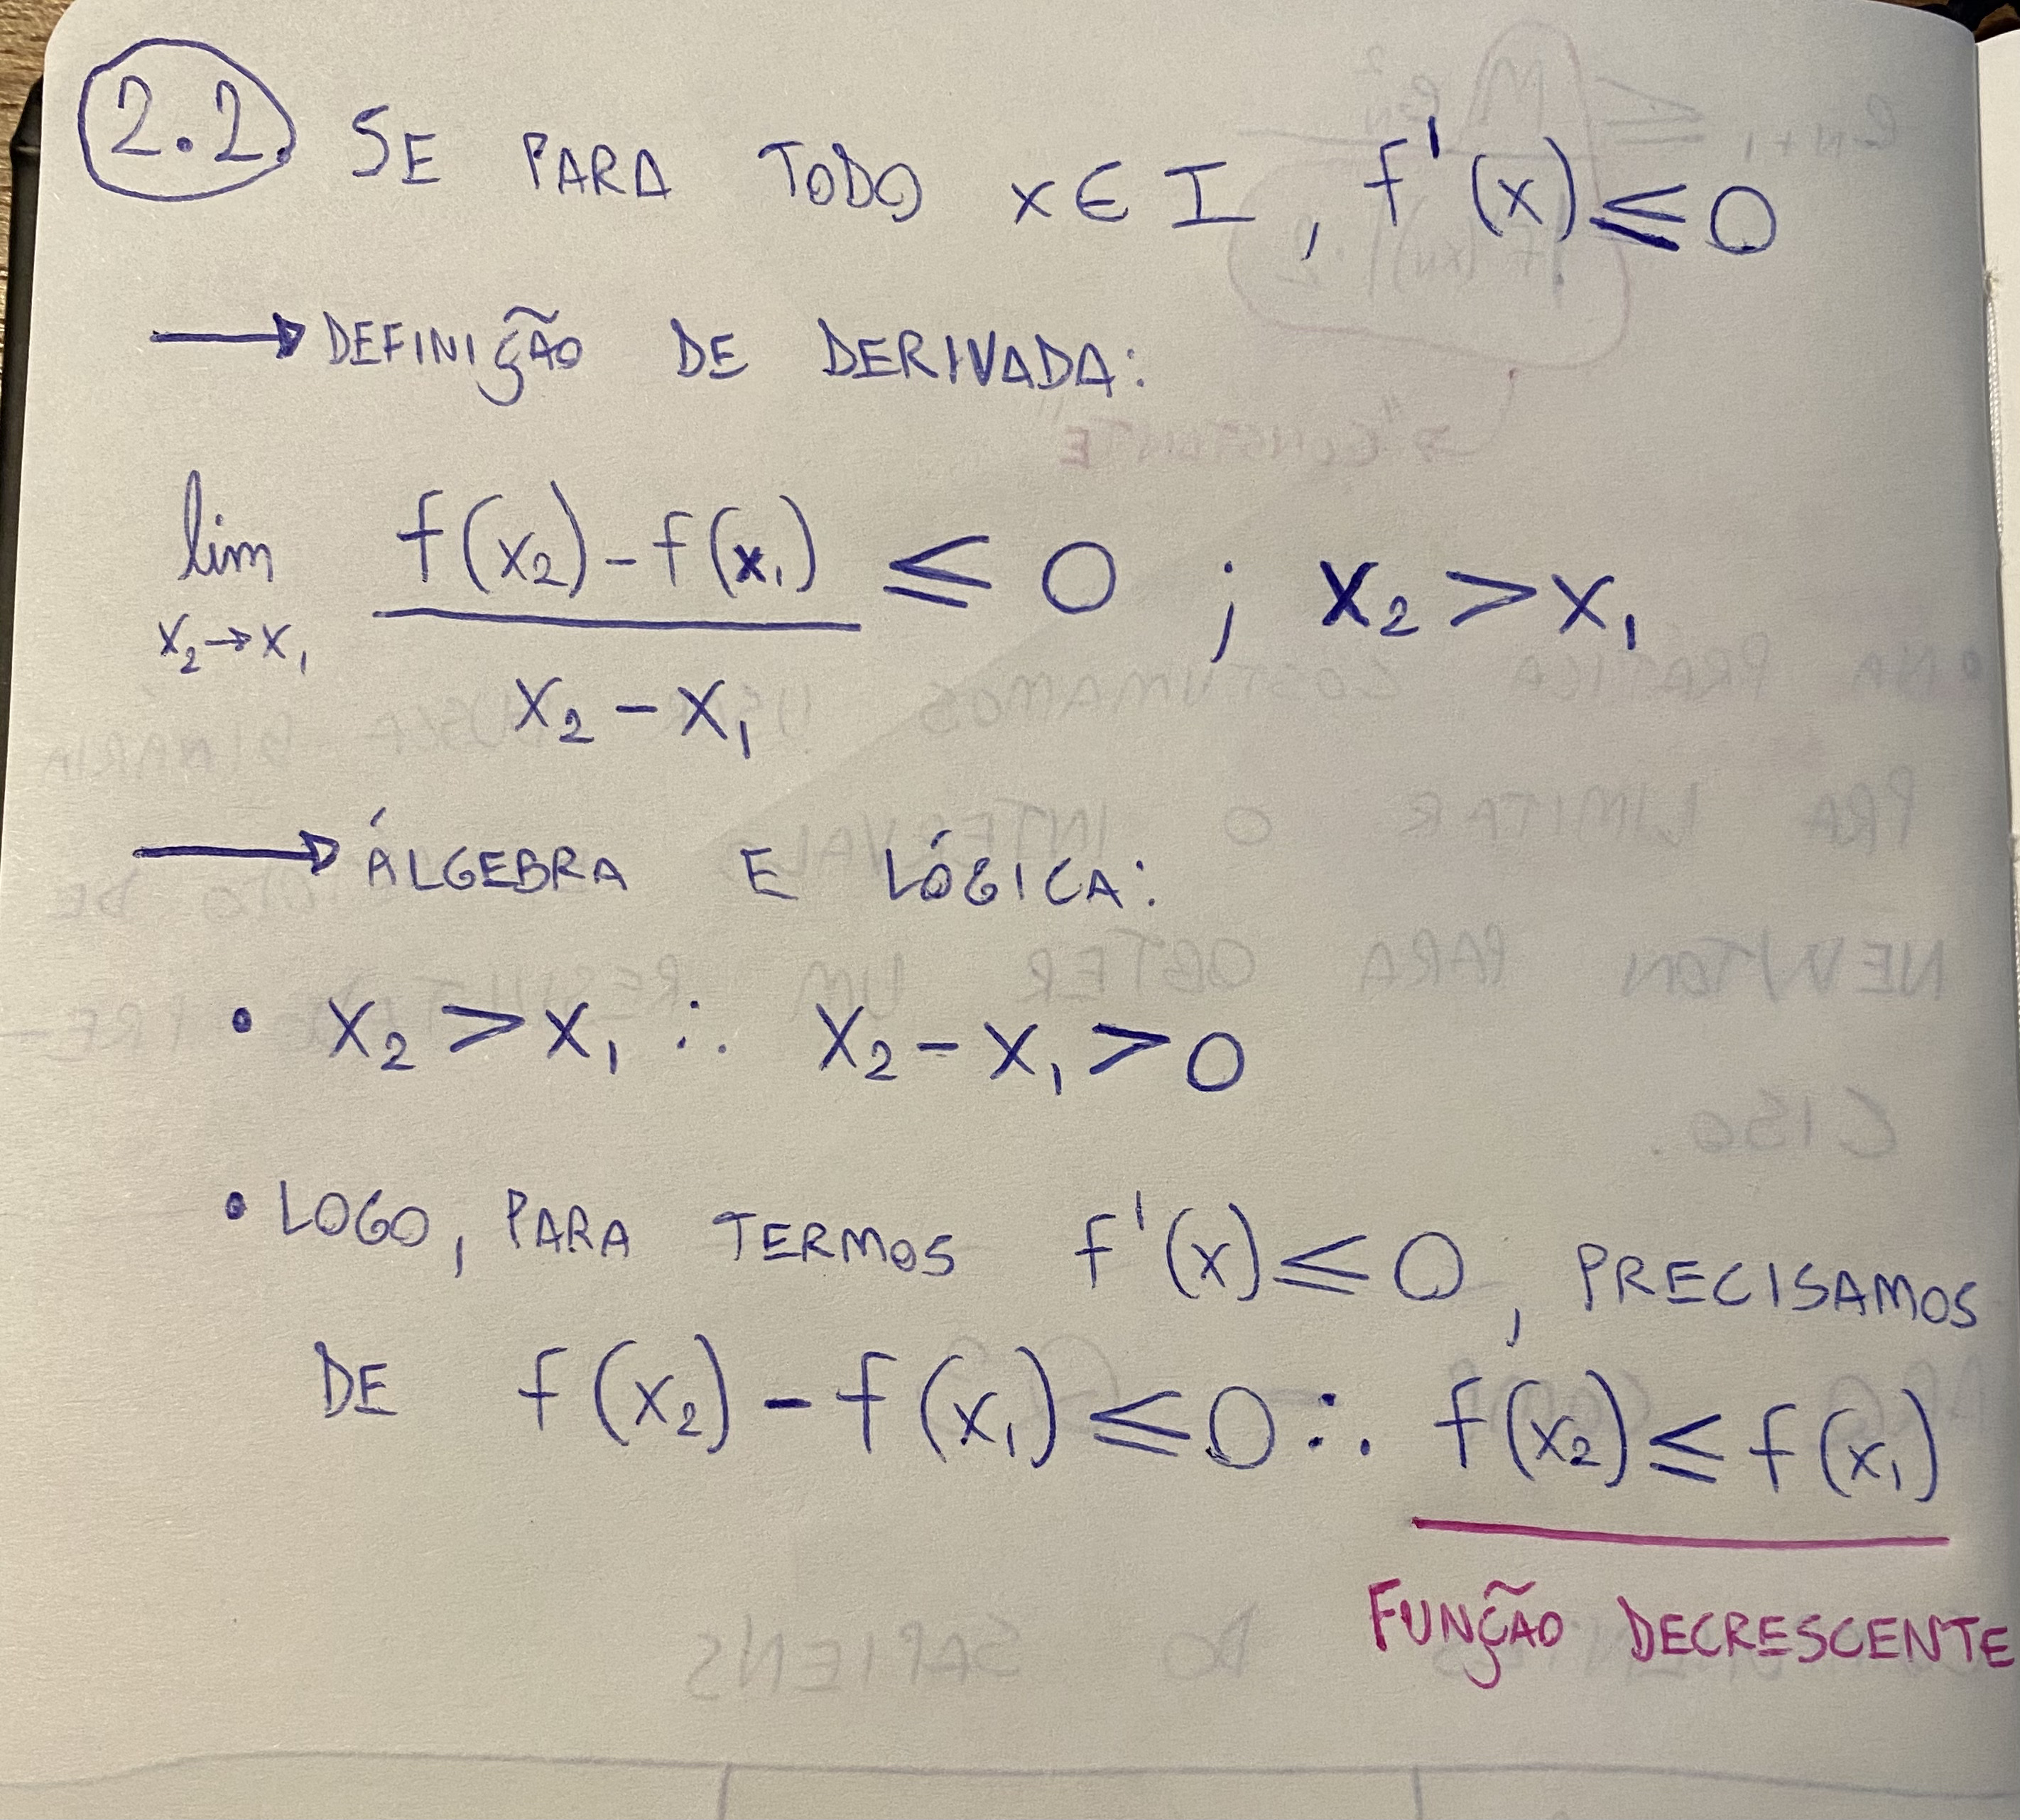 2.2. SE PARA TODO x ∈ I, f'(x) ≤ 0
→ DEFINIÇÃO DE DERIVADA:
lim x₂→x₁ f(x₂)-f(x₁) / x₂-x₁ ≤ 0 ; x₂ > x₁
→ ÁLGEBRA E LÓGICA:
• x₂ > x₁ ∴ x₂ - x₁ > 0
• LOGO, PARA TERMOS f'(x) ≤ 0, PRECISAMOS
DE f(x₂) - f(x₁) ≤ 0 ∴ f(x₂) ≤ f(x₁)
FUNÇÃO DECRESCENTE